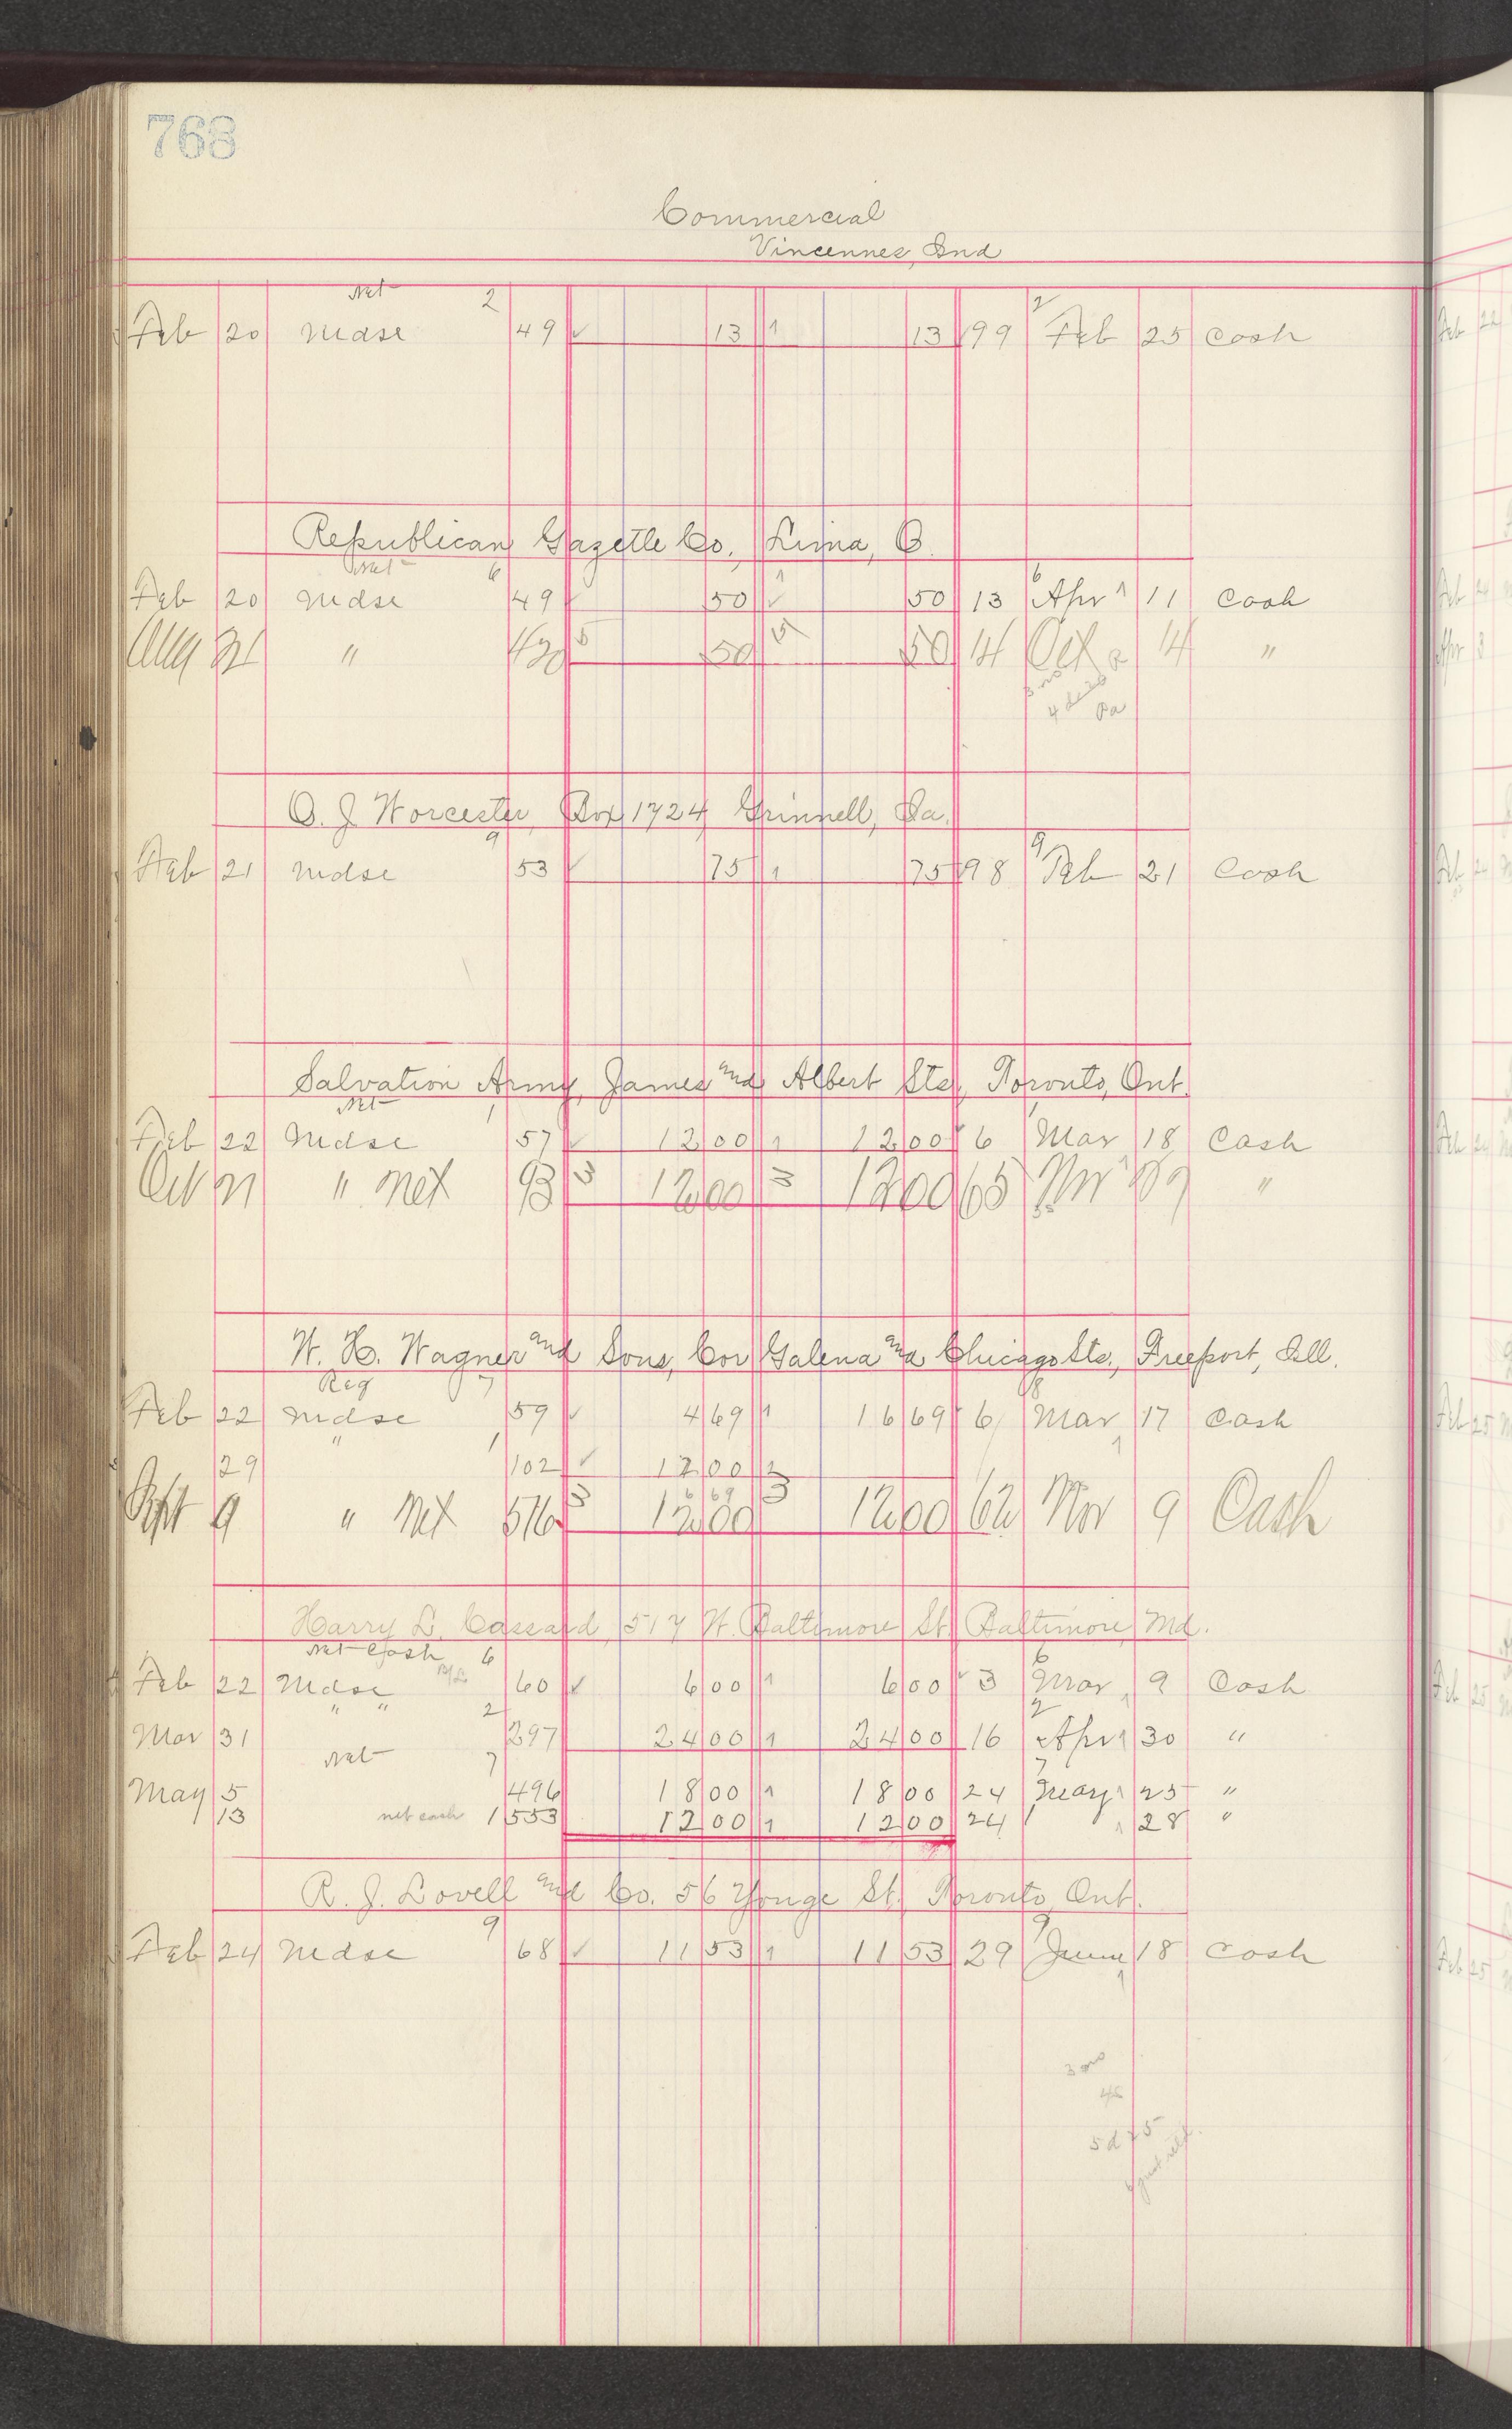 768
Commercial
Vincennes, Ind
Net 2 2
Feb 20 Mdse 49 ✓ 13 1 13 99 Feb 25 Cash
Republican Gazette Co., Lima, O.
Net 6 1 6
Feb 20 Mdse 49 ✓ 50 ✓ 50 13 Apr 1 11 Cash
Aug 31 " 430 5 50 5 50 14 Oct 2 14 "
3 mo
4
O. J. Worcester, Box 1724, Grinnell, Ia.
9 9
Feb 21 Mdse 53 ✓ 75 1 75 98 Feb 21 Cash
Salvation Army, James and Albert Sts, Toronto, Ont.
Net 1 1
Feb 22 Mdse 57 ✓ 12 00 1 12 00 6 Mar 18 Cash
Oct 21 " Net 93 3 12 00 3 12 00 65 Nov 19 "
W. H. Wagner and Sons, Cor Galena and Chicago Sts., Freeport, Ill.
Reg 7 8
Feb 22 Mdse 59 ✓ 4 69 1 16 69 6 Mar 17 Cash
29 " 1 102 ✓ 12 00 2 1
16 69
Sept 9 " Net 516 3 12 00 3 12 00 62 Nov 9 Cash
Harry L. Cassard, 517 W. Baltimore St. Baltimore, Md.
Net Cash 6 6
Feb 22 Mdse B/L 60 ✓ 6 00 1 6 00 3 Mar 1 9 Cash
" " 2 2
Mar 31 297 24 00 1 24 00 16 Apr 1 30 "
Net 7 7
May 5 496 18 00 1 18 00 24 May 1 25 "
13 net cash 1 553 12 00 1 12 00 24 1 1 28 "
R. J. Lovell and Co. 56 Yonge St. Toronto, Ont.
9 9
Feb 24 Mdse 68 ✓ 11 53 1 11 53 29 June 18 Cash
1
3 mo